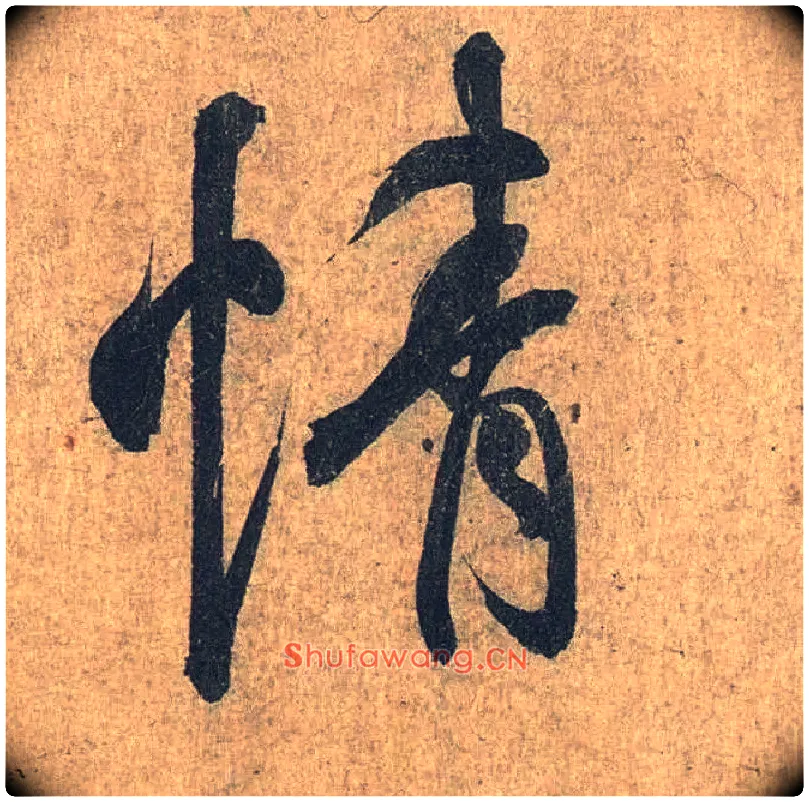 情
Shufawang.CN